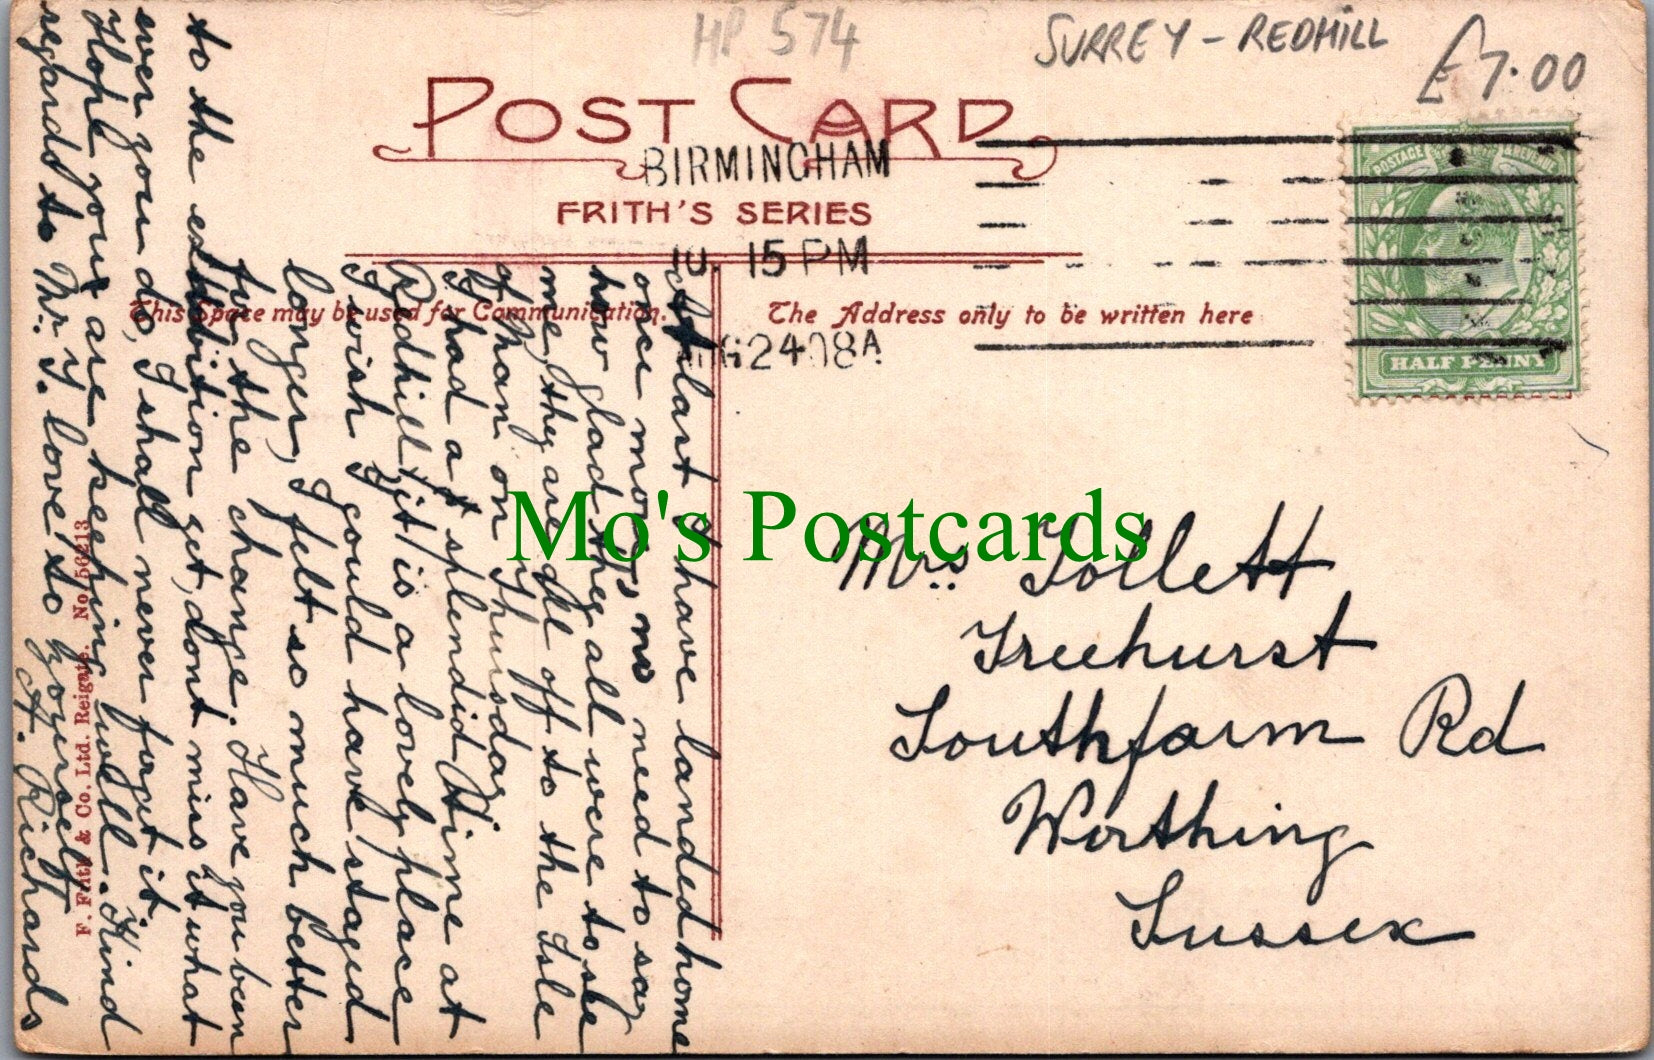 HP 574
SURREY - REDHILL
£7.00
POST CARD
BIRMINGHAM
FRITH'S SERIES
10. 15 PM
This Space may be used for Communication.
The Address only to be written here
AUG 24 08 A
POSTAGE & REVENUE
HALF PENNY
Mrs. Tollett
Treehurst
Southfarm Rd
Worthing
Sussex
At last I have landed home
once more, no need to say
how glad they all were to see
me, they are all off to the Isle
of Man on Thursday.
I had a splendid time at
Redhill, it is a lovely place
I wish I could have stayed
longer, I felt so much better
for the change. Have you been
to the exhibition yet, dont miss it what
ever you do, I shall never forget it.
Hope you are keeping well. Kind
regards to Mr. T. love to yourself
A. Richards
F. Frith & Co. Ltd. Reigate. No. 56213
Mo's Postcards